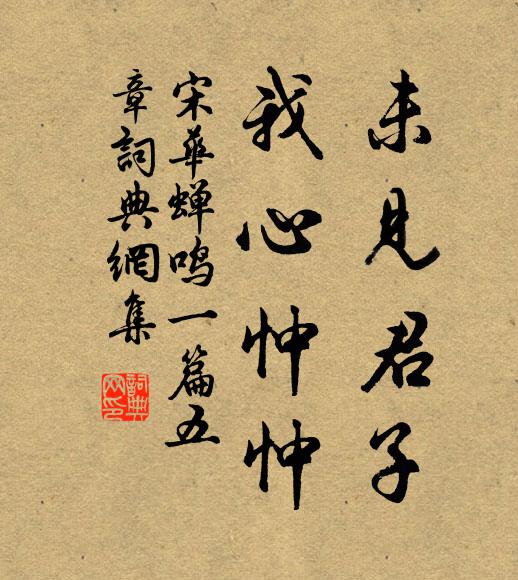 未見君子
我心忡忡
宋華蝉鸣一篇五
章詞典網集
詞典
网印